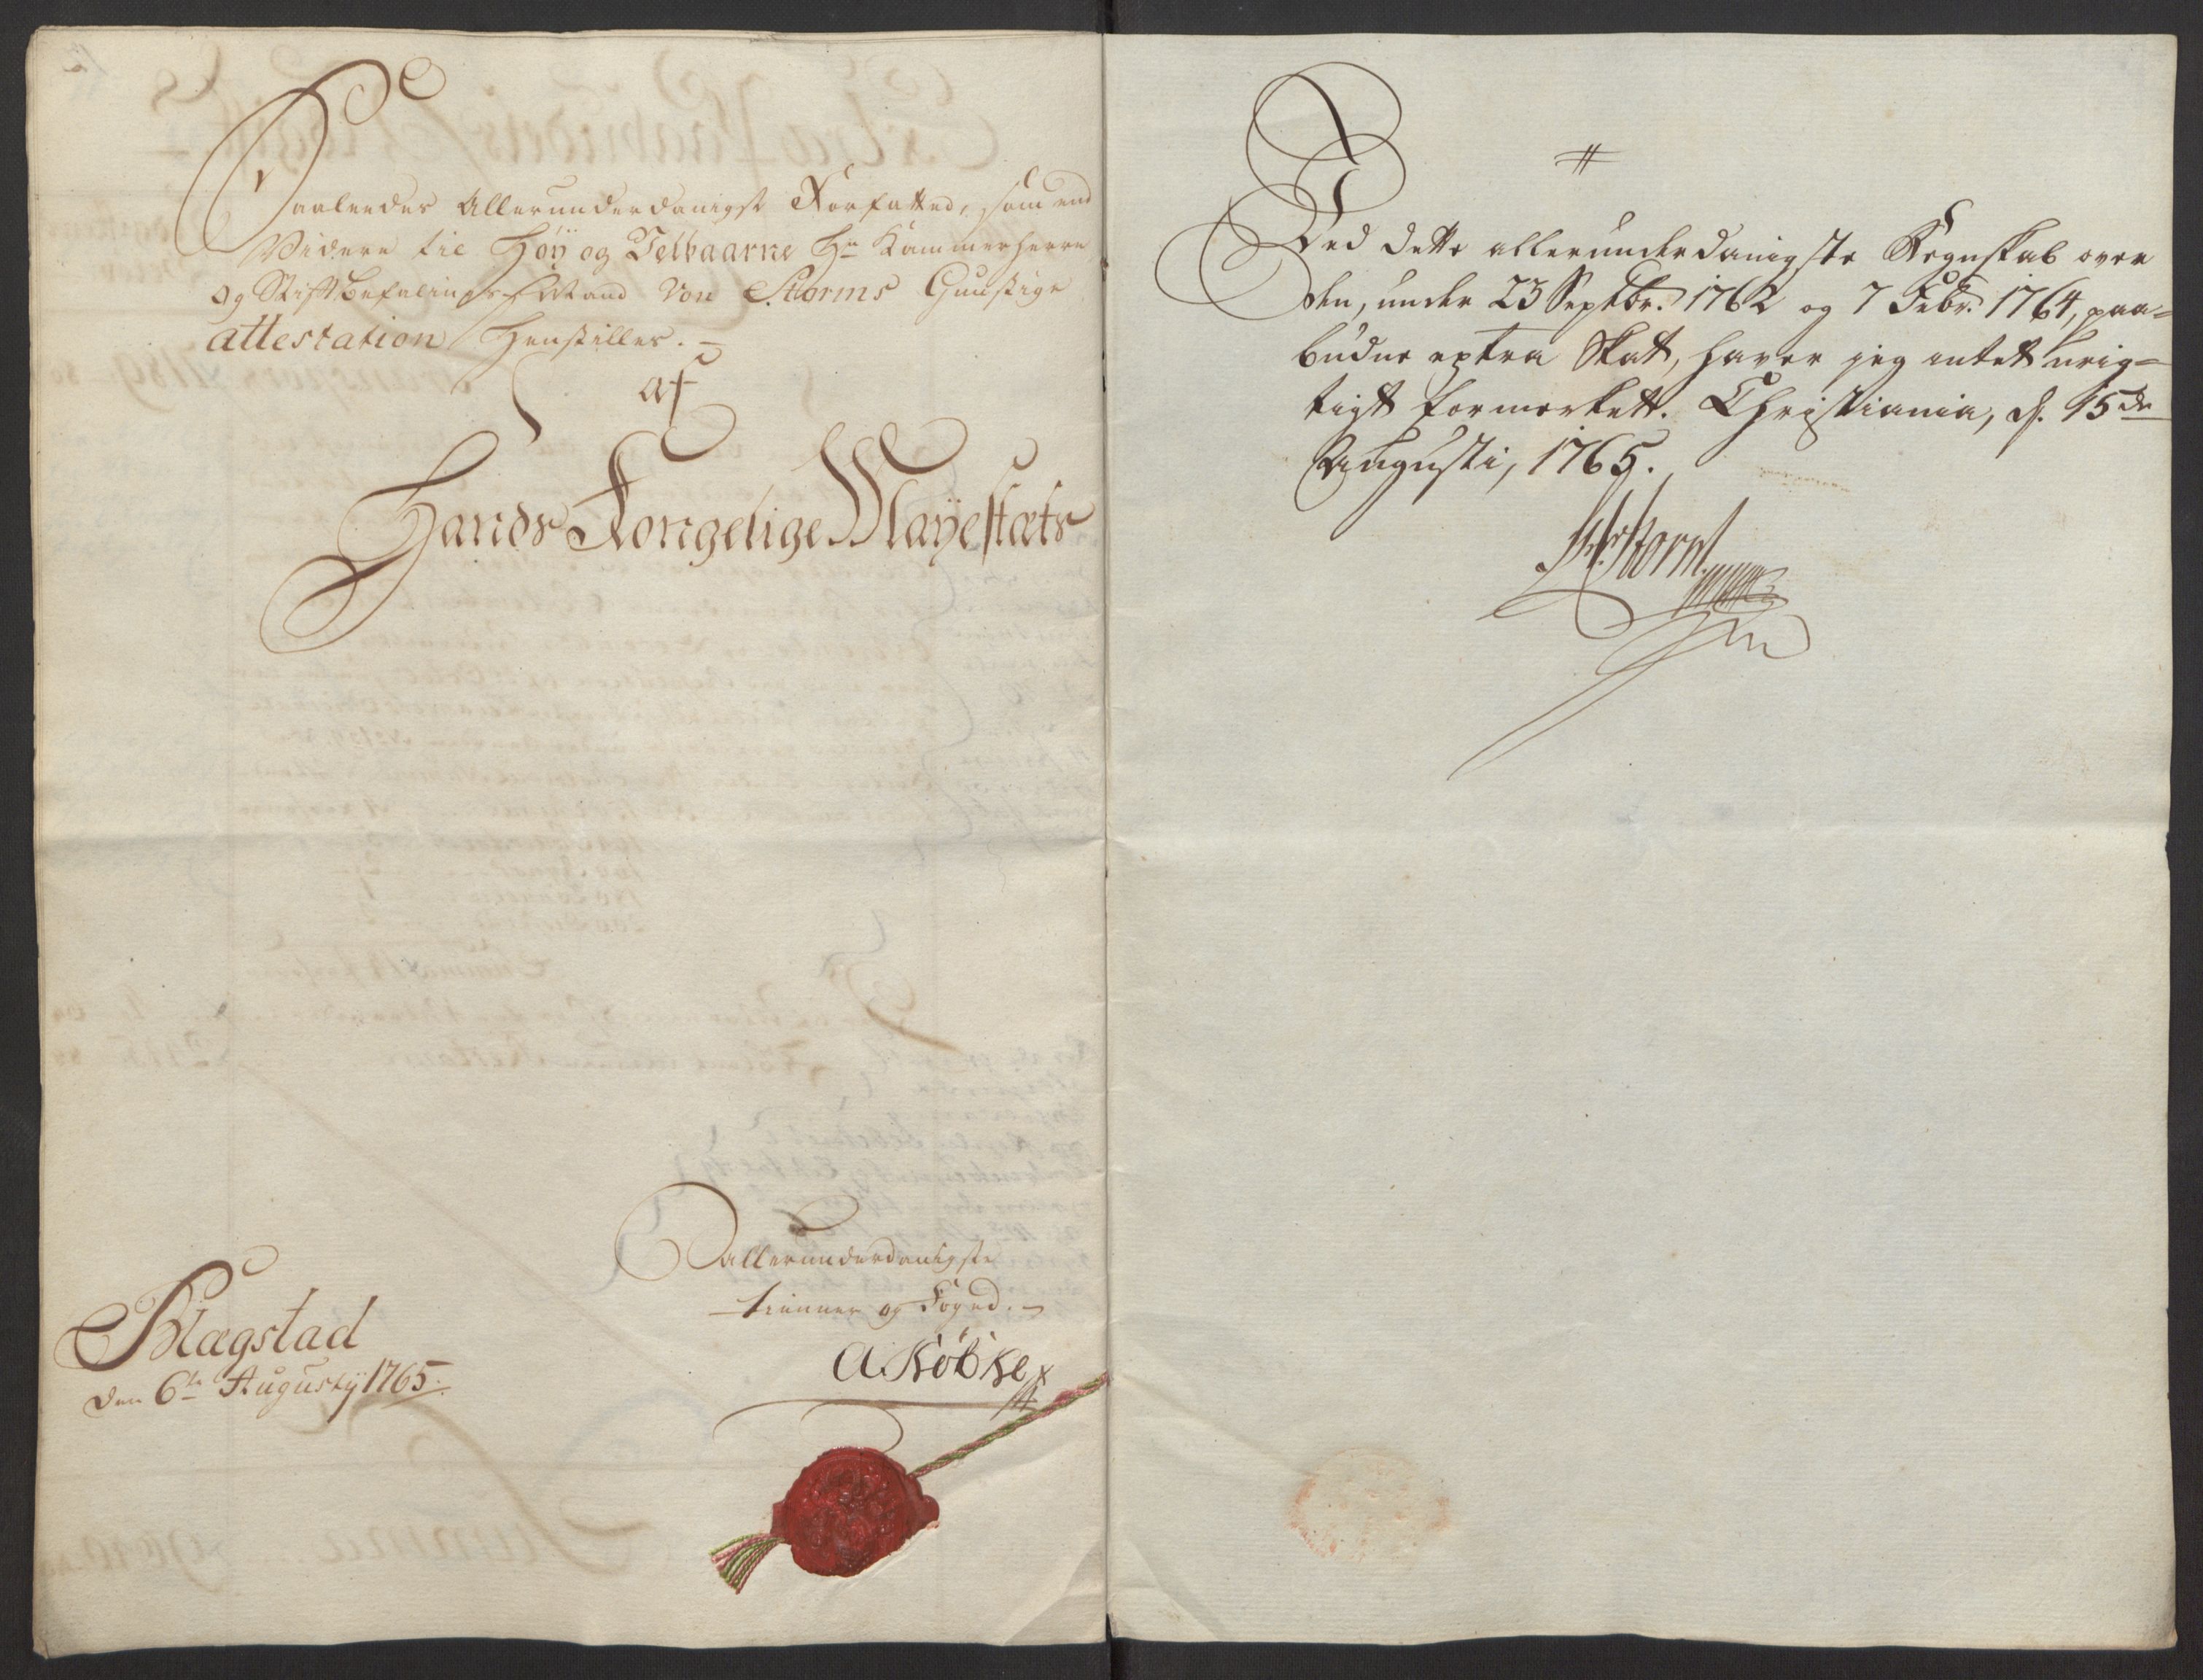 Saaleedes Allerunderdanigst Forfatted, som end
Videre til Höy og Velbaarne Hr Kammerherre
og Stiftbefalings-Mand Von Storms Gunstige
attestation Henstilles. –
af
Hands Kongelige Mayestæts
allerunderdanigste
tienner og Foged. –
A. Röbke
Blægstad
den 6te Augusty 1765.
#
Ved dette allerunderdanigste Regnskab over
den, under 23 Septbr. 1762 og 7 Febr. 1764, paa=
budne extra Skat, haver jeg intet urig=
tigt formerket. Christiania, d. 15de
Augusti, 1765.
Storm